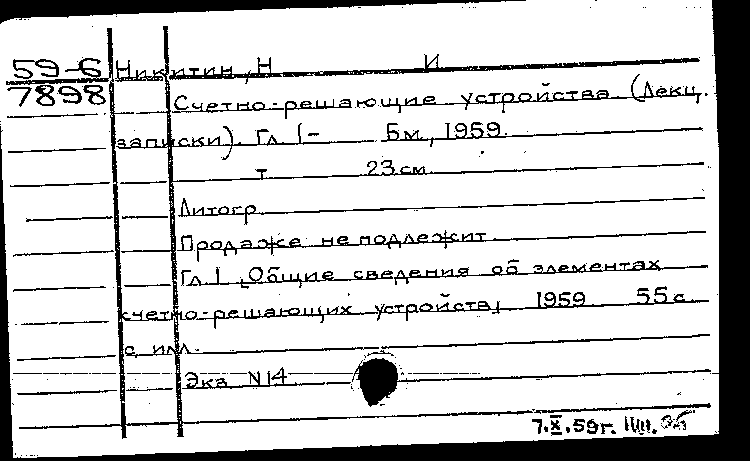 59-6 Никитин, Н И
7898
Счетно-решающие устройства (Лекц.
записки). Гл. 1- Б м, 1959.
т 23 см
Литогр
Продаже не подлежит
Гл. 1 Общие сведения об элементах
счетно-решающих устройств, 1959 55 с
с илл.
Экз N 14
7.X.59г.